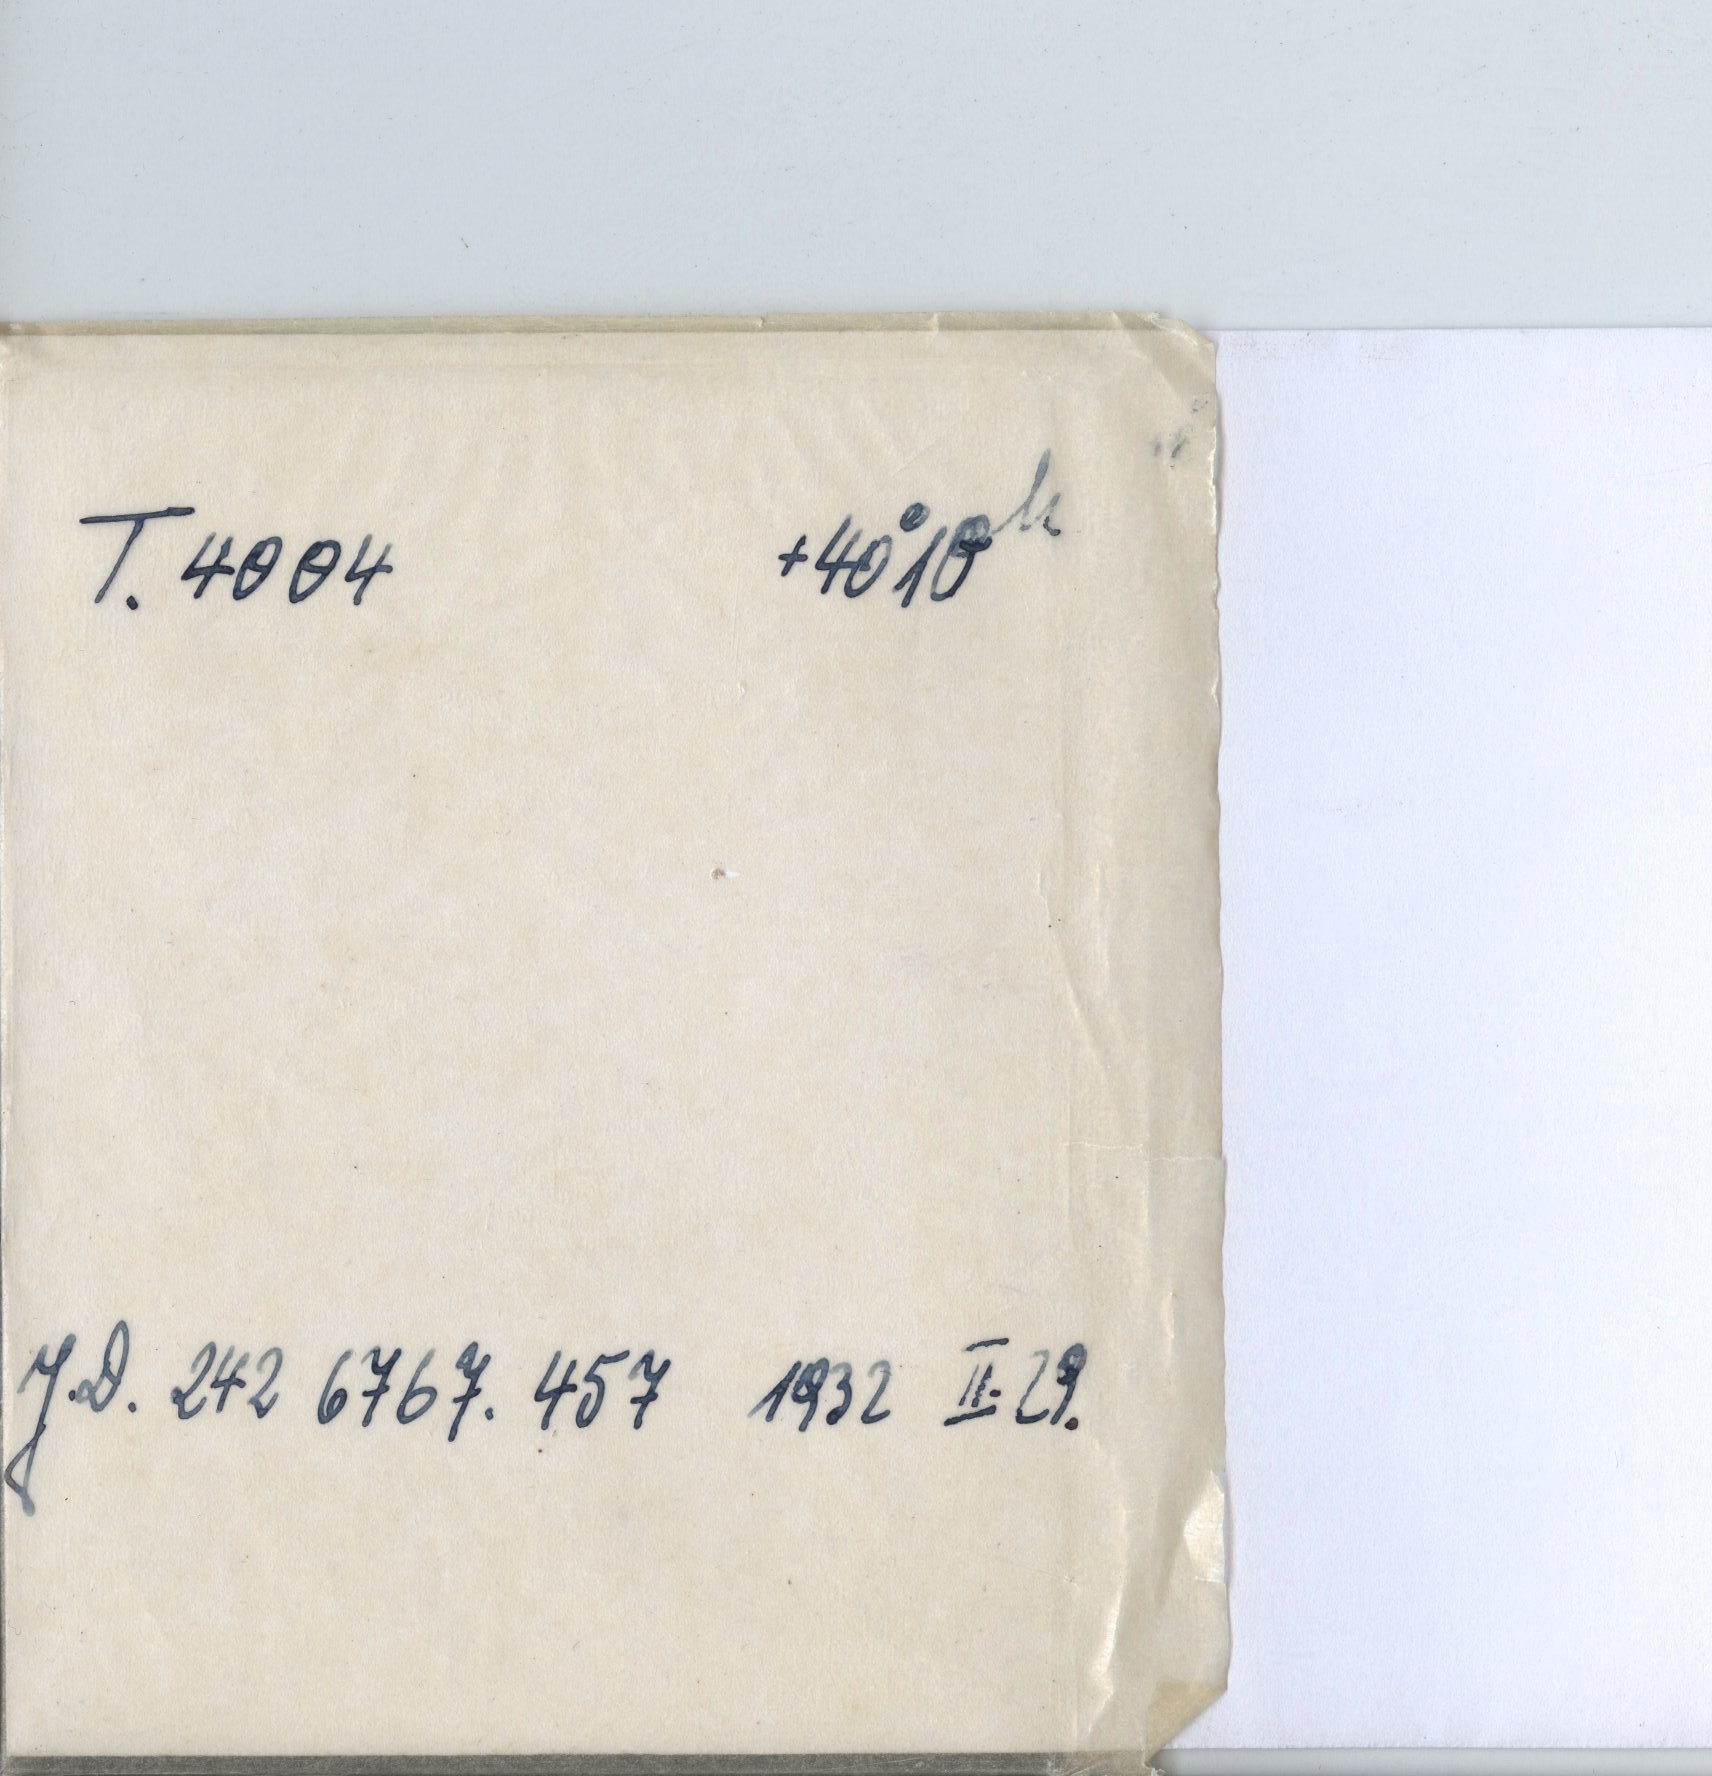 T. 4004 +40° 10ᵐ
J.D. 242 6767. 457 1932 II. 29.